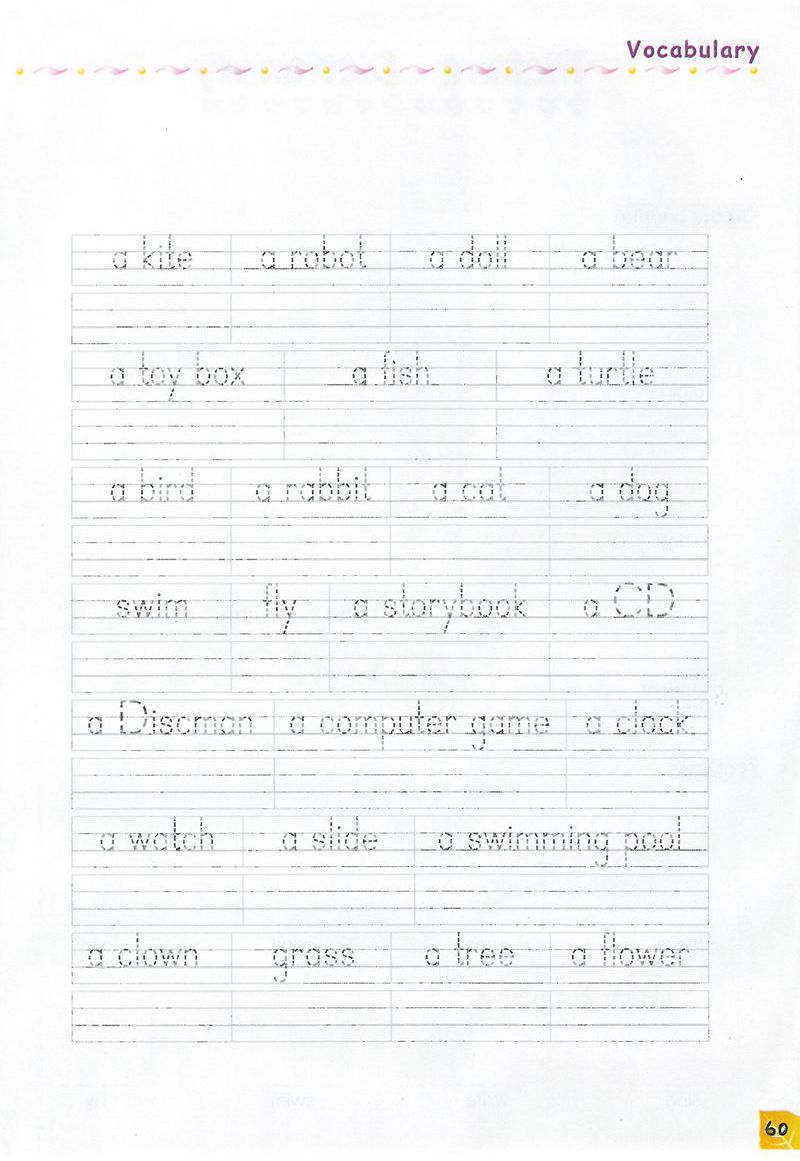 Vocabulary
a kite a robot a doll a bear
a toy box a fish a turtle
a bird a rabbit a cat a dog
swim fly a storybook a CD
a Discman a computer game a clock
a watch a slide a swimming pool
a clown grass a tree a flower
60